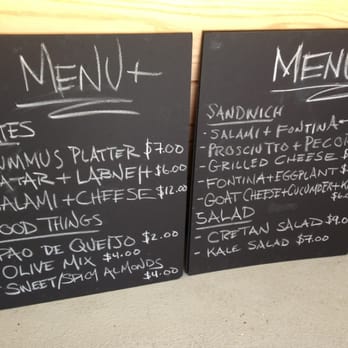 MENU+
TES
UMMUS PLATTER $7.00
ATAR + LABNEH $6.00
ALAMI + CHEESE $12.00
OOD THINGS
PAO DE QUEIJO $2.00
OLIVE MIX $4.00
SWEET/SPICY ALMONDS
$4.00
MENU
SANDWICH
- SALAMI + FONTINA
- PROSCIUTTO + PECOR
- GRILLED CHEESE $
- FONTINA + EGGPLANT $
- GOAT CHEESE + CUCUMBER + K
$6.
SALAD
- CRETAN SALAD $9.
- KALE SALAD $7.00